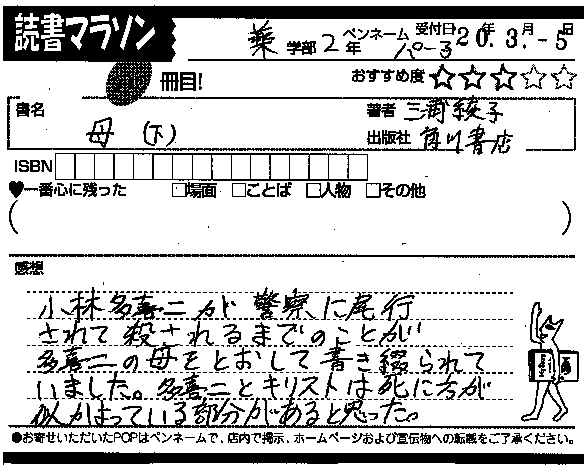 読書マラソン
薬 学部 2 年 ペンネーム パーる 受付日 20年 3.月 -5日
冊目!
おすすめ度 ☆☆☆☆☆
書名 母 (下)
著者 三浦綾子
出版社 角川書店
ISBN
♥一番心に残った □場面 □ことば □人物 □その他
( )
感想
小林多喜二が警察に尾行
されて殺されるまでのことが
多喜二の母をとおして書き綴られて
いました。多喜二とキリストは死に方が
似かよっている部分があると思った。
●お寄せいただいたPOPはペンネームで、店内で掲示、ホームページおよび宣伝物への転載をご了承ください。